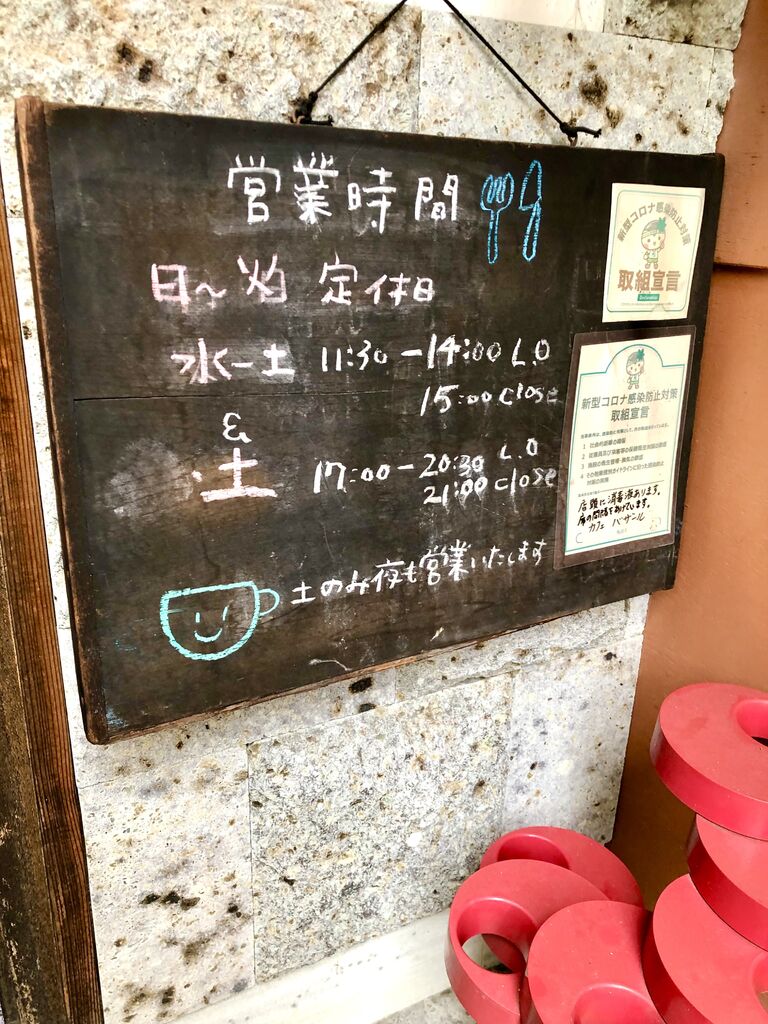 営業時間
日〜火 定休日
水ー土 11:30 ー14:00 L.O
15:00 close
&
土 17:00 ー 20:30 L.O
21:00 close
土のみ夜も営業いたします
新型コロナ感染防止対策
取組宣言
新型コロナ感染防止対策
取組宣言
店頭に消毒液あります。
席の間隔をあけています。
カフェ バザール